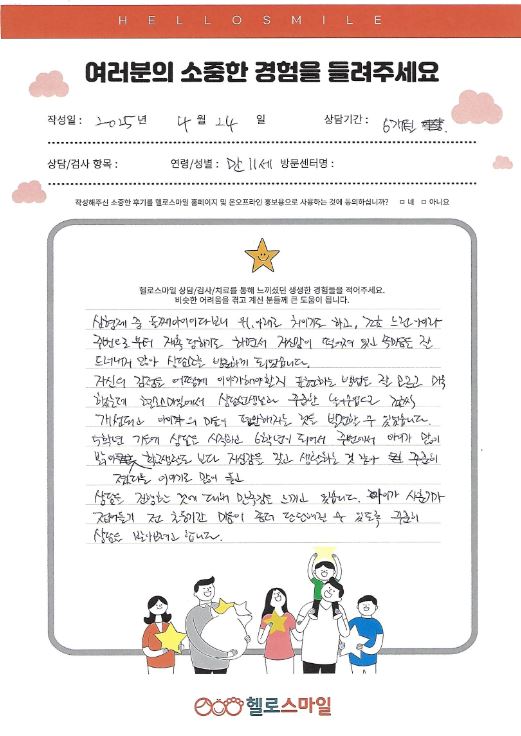 HELLOSMILE
여러분의 소중한 경험을 들려주세요
작성일 : 2025년 4월 24일 상담기간 : 6개월
상담/검사 항목 : 연령/성별 : 만 11세 방문센터명 :
작성해주신 소중한 후기를 헬로스마일 홈페이지 및 온오프라인 홍보용으로 사용하는 것에 동의하십니까? □ 네 □ 아니요
헬로스마일 상담/검사/치료를 통해 느끼셨던 생생한 경험들을 적어주세요.
비슷한 어려움을 겪고 계신 분들께 큰 도움이 됩니다.
삼형제 중 둘째아이이다보니 위, 아래로 치이기도 하고, 조금 느린 아이라
주변으로부터 지적 당하기도 하면서 자신감이 떨어져 있고 속마음을 잘
드러내지 않아 상담센터를 방문하게 되었습니다.
자신의 감정을 어떻게 이야기해야할지 표현하는 방법을 잘 모르고 더욱
했는데 헬로스마일에서 상담선생님과 꾸준한 놀이 점차
개선되고 아이의 마음이 편안해지는 것을 발견할 수 있었습니다.
5학년 가을에 상담을 시작하고 6학년이 되어서 주변에서 아이가 많이
밝아 학교생활도 보다 자신감을 갖고 생활하는 것 같다 꾸준히
이야기도 많이 듣고
상담을 진행하는 것에 대해 만족감을 느끼고 있습니다. 아이가 사춘기가
접어들기 전 초등기간 마음이 좀더 단단해질 수 있도록 꾸준히
상담을 받아보려고 합니다.
헬로스마일